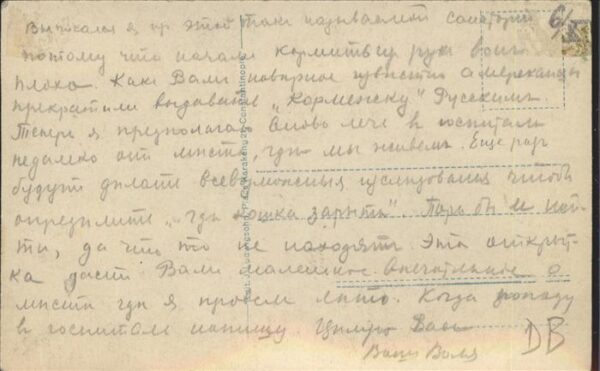 Выписался я из этой так называемой санатории
потому что начали кормить из рук вон
плохо. Как Вам наверное известно американцы
прекратили выдавать „Кормежку" Русскимъ.
Теперь я предполагаю вновь лечь в госпиталь
недалеко от места, где мы живем. Еще раз
будут делать всевозможныя изследования чтобы
определить „где кошка зарыта". Пора бы и най-
ти, да что то не находят. Эта открыт-
ка даст Вам маленькое впечатление о
месте где я провел лето. Когда попаду
в госпиталь напишу Вам
Ваш Воля
DB
6/X
Constantinople